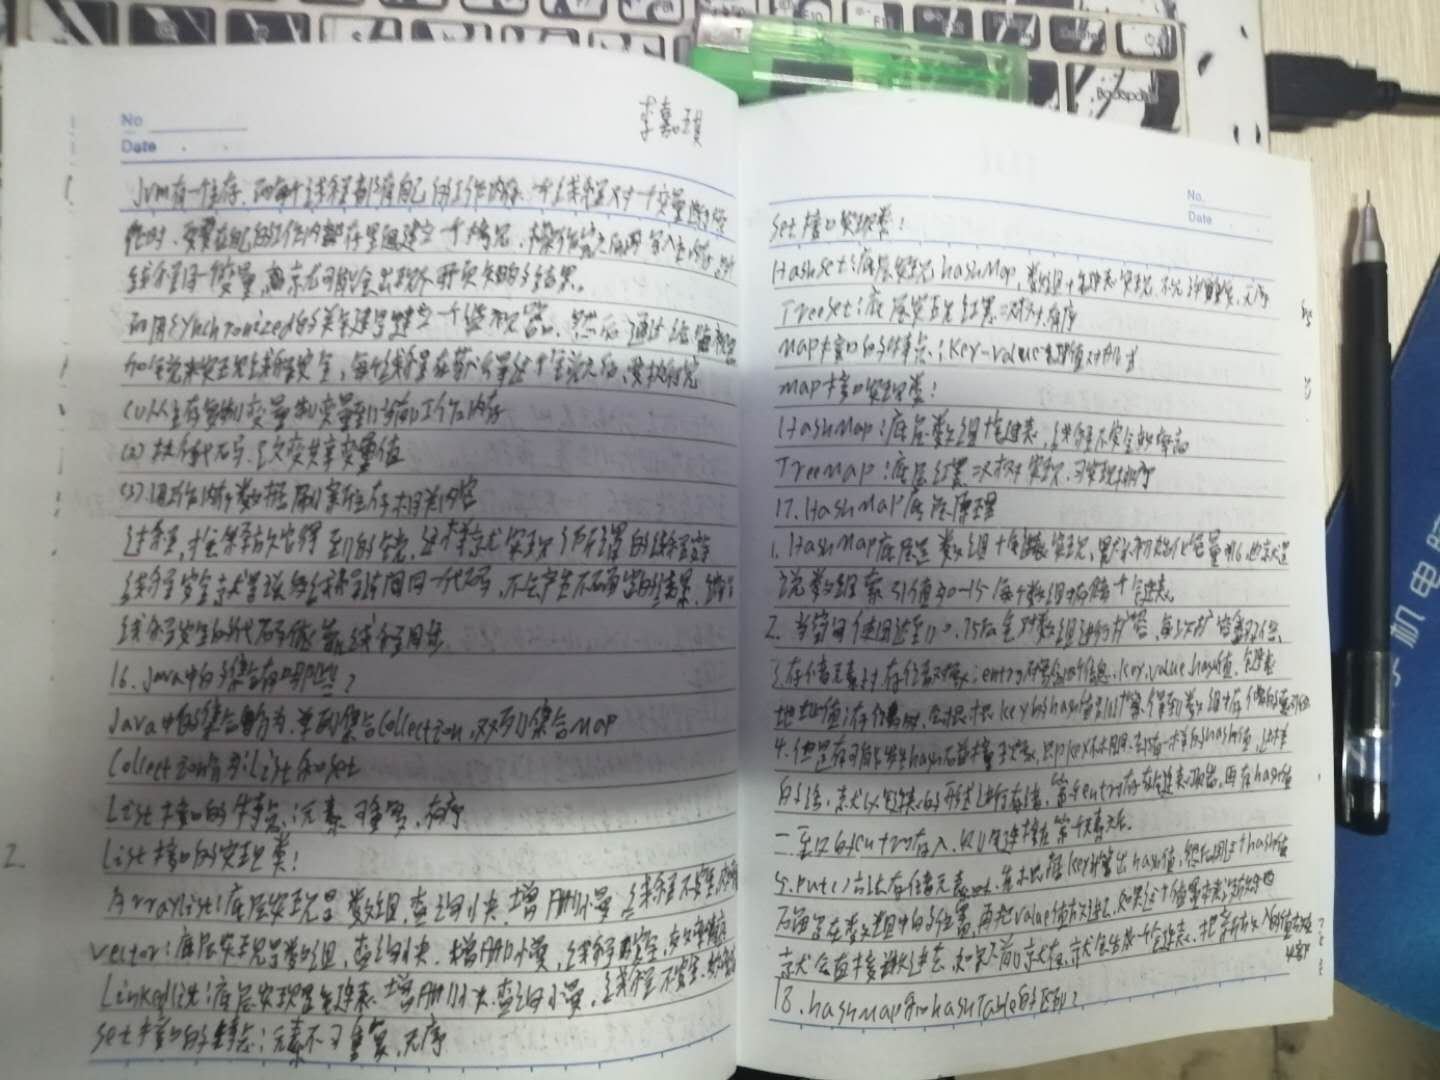 李嘉琪
No
Date
Jvm有一个主存，而每个线程都有自己的工作内存，一个线程对一个变量进行操
作时，要在自己的工作内存里面建立一个拷贝，操作完之后再写入主内存，
线程同一变量，就可能会出现不可预知的结果。
而用synchronized的关键是建立一个监视器，然后通过给监视器
加锁来实现线程安全，每个线程在获得这个锁之后，要执行完
(1)从主存复制变量到当前工作内存
(2)执行代码，改变共享变量值
(3)用工作内存数据刷新主存相关内容
过程，才会释放它得到的锁，这样就实现了所谓的线程安全
线程安全就是说多线程访问同一代码，不会产生不确定的结果，
线程安全的代码依靠线程同步
16. Java中的集合有哪些？
Java中的集合分为，单列集合Collection，双列集合Map
Collection分为List和set
List接口的特点：元素可重复，有序
List接口的实现类：
Arraylist：底层实现是数组，查询快，增删慢，线程不安全，
vector：底层实现是数组，查询快，增删慢，线程安全，
Linkedlist：底层实现是链表，增删快，查询慢，线程不安全，
set接口的特点：元素不可重复，无序
No.
Date
set接口实现类：
HashSet：底层实现hashMap，数组+链表实现，不允许重复，无序
TreeSet：底层实现红黑二叉树，有序
map接口的特点：Key-value键值对形式
map接口实现类：
HashMap：底层数组+链表，线程不安全，
TreeMap：底层红黑二叉树实现，可实现排序
17. HashMap底层原理
1. HashMap底层是数组+链表实现，默认初始化容量16，也就是
说数组索引值为0-15，每个数组存储一个链表
2. 当容量使用达到0.75后会对数组进行扩容，每次扩容是2倍，
3. 存储元素时，存储是对象：entry对象包括四个信息，key, value, hash值，链表
地址值；存储时，会根据key的hash值计算，得到数组中存储的位置
4. 但是有可能发生hash碰撞现象，即key不相同，却有一样的hash值，这样
的话，就以链表的形式进行存储，第一个entry存在链表顶端，再有hash值
一至的entry存入，以链连接在第一个之后。
5. Put()方法存储元素，先根据key计算出hash值，然后通过hash值
确定在数组中的位置，再把value值放进去，如果这个位置本来没有的
就会直接放进去，如果之前就有，就会生成一个链表，把新放入的值放在
头部
18. hashmap和hashTable的区别？